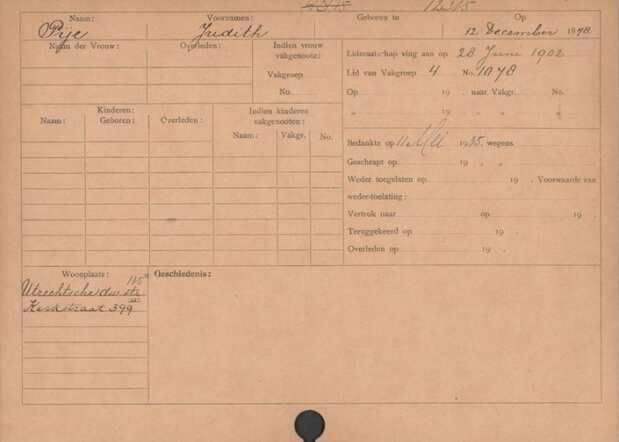 12365
Naam: Voornamen: Geboren te Op
Pije Judith 12 December 1878
Naam der Vrouw: Overleden: Indien vrouw vakgenoote:
Vakgroep
No.
Lidmaatschap ving aan op 28 Juni 1902
Lid van Vakgroep 4 No. 1078
Op 19 , naar Vakgr. No.
„ 19 „ „ „
Kinderen: Indien kinderen vakgenooten:
Naam: Geboren: Overleden: Naam: Vakgr. No.
Bedankte op 11 Mei 1935. wegens
Geschrapt op 19 „ „
Weder toegelaten op 19 , Voorwaarde van
weder-toelating:
Vertrok naar op 19
Teruggekeerd op 19 .
Overleden op 19 .
Woonplaats: Geschiedenis:
115
Utrechtschedw. str
Kerkstraat 399